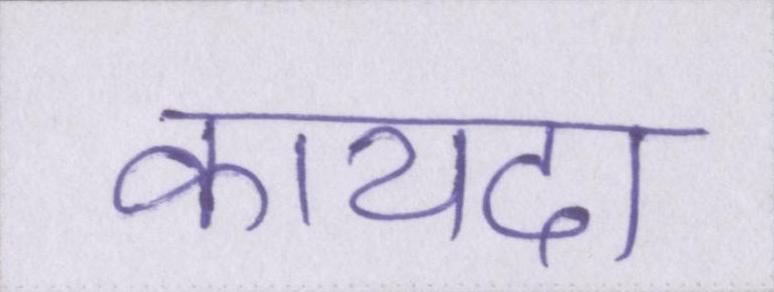 कायदा